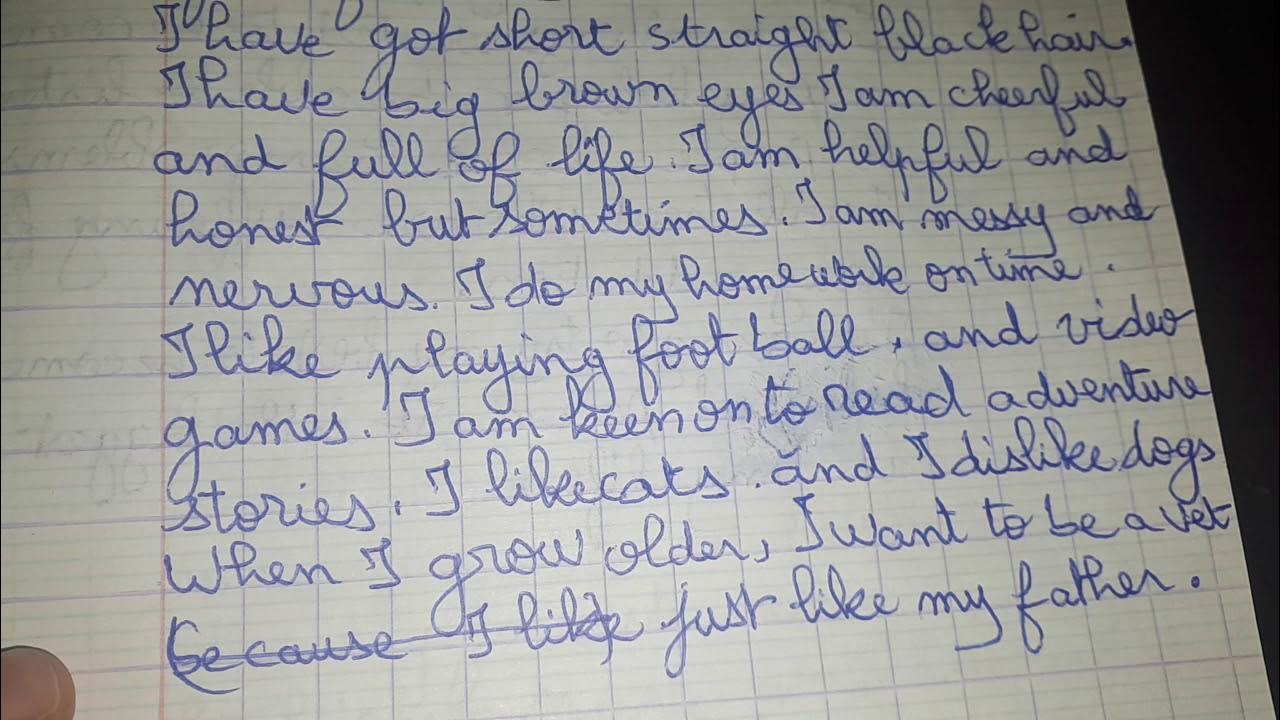 I have got short straight black hair.
I have big brown eyes I am cheerful
and full of life. I am helpful and
honest but sometimes. I am messy and
nervous. I do my homework on time.
I like playing foot ball, and video
games. I am keen on to read adventure
stories. I like cats. and I dislike dogs
When I grow older, I want to be a vet
because I like just like my father.